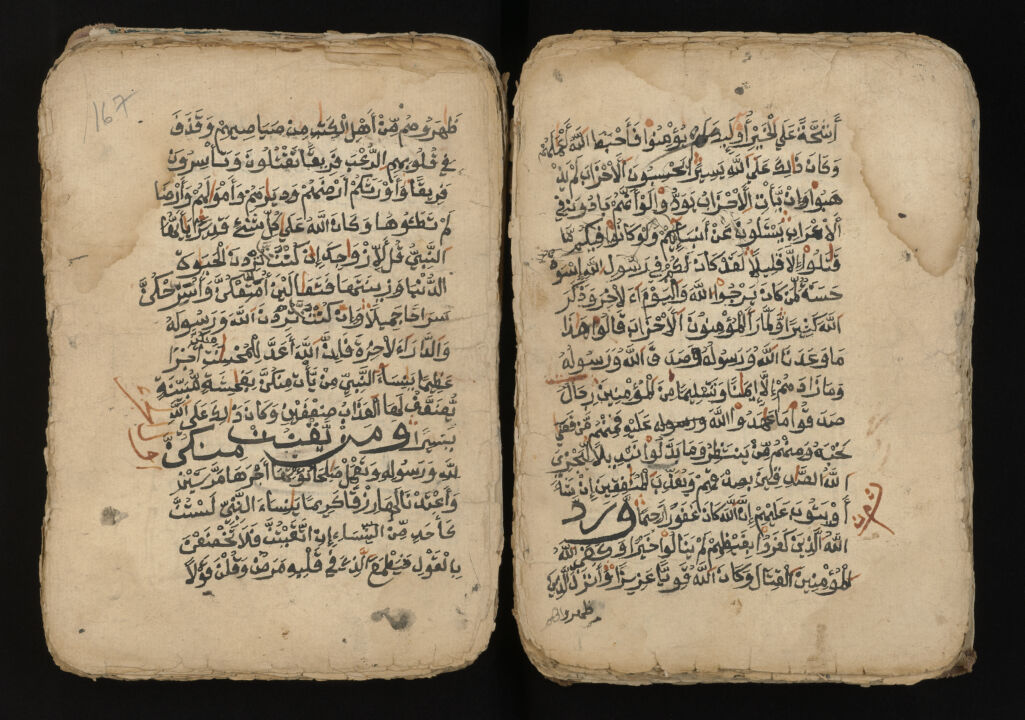 أَشِحَّةً عَلَى الْخَيْرِ أُوْلَٰئِكَ لَمْ يُؤْمِنُوا فَأَحْبَطَ اللَّهُ أَعْمَٰلَهُمْ
وَكَانَ ذَٰلِكَ عَلَى اللَّهِ يَسِيرًا يَحْسِبُونَ الْأَحْزَابَ لَمْ يَذْ
هَبُوا وَإِنْ يَأْتِ الْأَحْزَابُ يَوَدُّوا لَوْ أَنَّهُمْ بَادُونَ فِي
الْأَعْرَابِ يَسْئَلُونَ عَنْ أَنْبَائِكُمْ وَلَوْ كَانُوا فِيكُمْ مَا
قَٰتَلُوا إِلَّا قَلِيلًا لَقَدْ كَانَ لَكُمْ فِي رَسُولِ اللَّهِ إِسْوَةٌ
حَسَنَةٌ لِمَنْ كَانَ يَرْجُوا اللَّهَ وَالْيَوْمَ الْآخِرَ وَذَكَرَ
اللَّهَ كَثِيرًا وَلَمَّا رَءَا الْمُؤْمِنُونَ الْأَحْزَابَ قَالُوا هَٰذَا
مَا وَعَدَنَا اللَّهُ وَرَسُولُهُ وَصَدَقَ اللَّهُ وَرَسُولُهُ
وَمَا زَادَهُمْ إِلَّا إِيمَٰنًا وَتَسْلِيمًا مِنَ الْمُؤْمِنِينَ رِجَالٌ
صَدَقُوا مَا عَٰهَدُوا اللَّهَ عَلَيْهِ فَمِنْهُمْ مَنْ قَضَىٰ
نَحْبَهُ وَمِنْهُمْ مَنْ يَنْتَظِرُ وَمَا بَدَّلُوا تَبْدِيلًا لِيَجْزِيَ
اللَّهُ الصَّٰدِقِينَ بِصِدْقِهِمْ وَيُعَذِّبَ الْمُنَٰفِقِينَ إِنْ شَاءَ
أَوْ يَتُوبَ عَلَيْهِمْ إِنَّ اللَّهَ كَانَ غَفُورًا رَحِيمًا وَرَدَّ
اللَّهُ الَّذِينَ كَفَرُوا بِغَيْظِهِمْ لَمْ يَنَالُوا خَيْرًا وَكَفَى اللَّهُ
الْمُؤْمِنِينَ الْقِتَالَ وَكَانَ اللَّهُ قَوِيًّا عَزِيزًا وَأَنْزَلَ الَّذِينَ
ظهروهم
167
ظَٰهَرُوهُمْ مِنْ أَهْلِ الْكِتَٰبِ مِنْ صَيَاصِيهِمْ وَقَذَفَ
فِي قُلُوبِهِمُ الرُّعْبَ فَرِيقًا تَقْتُلُونَ وَتَأْسِرُونَ
فَرِيقًا وَأَوْرَثَكُمْ أَرْضَهُمْ وَدِيَٰرَهُمْ وَأَمْوَٰلَهُمْ وَأَرْضًا
لَمْ تَطَئُوهَا وَكَانَ اللَّهُ عَلَىٰ كُلِّ شَيْءٍ قَدِيرًا يَٰأَيُّهَا
النَّبِيءُ قُلْ لِأَزْوَٰجِكَ إِنْ كُنْتُنَّ تُرِدْنَ الْحَيَوٰةَ
الدُّنْيَا وَزِينَتَهَا فَتَعَالَيْنَ أُمَتِّعْكُنَّ وَأُسَرِّحْكُنَّ
سَرَاحًا جَمِيلًا وَإِنْ كُنْتُنَّ تُرِدْنَ اللَّهَ وَرَسُولَهُ
وَالدَّارَ الْآخِرَةَ فَإِنَّ اللَّهَ أَعَدَّ لِلْمُحْسِنَٰتِ مِنْكُنَّ أَجْرًا
عَظِيمًا يَٰنِسَاءَ النَّبِيءِ مَنْ يَأْتِ مِنْكُنَّ بِفَٰحِشَةٍ مُبَيِّنَةٍ
يُضَٰعَفْ لَهَا الْعَذَابُ ضِعْفَيْنِ وَكَانَ ذَٰلِكَ عَلَى اللَّهِ
يَسِيرًا وَمَنْ يَقْنُتْ مِنْكُنَّ
لِلَّهِ وَرَسُولِهِ وَتَعْمَلْ صَٰلِحًا نُؤْتِهَا أَجْرَهَا مَرَّتَيْنِ
وَأَعْتَدْنَا لَهَا رِزْقًا كَرِيمًا يَٰنِسَاءَ النَّبِيءِ لَسْتُنَّ
كَأَحَدٍ مِنَ النِّسَاءِ إِنِ اتَّقَيْتُنَّ فَلَا تَخْضَعْنَ
بِالْقَوْلِ فَيَطْمَعَ الَّذِي فِي قَلْبِهِ مَرَضٌ وَقُلْنَ قَوْلًا